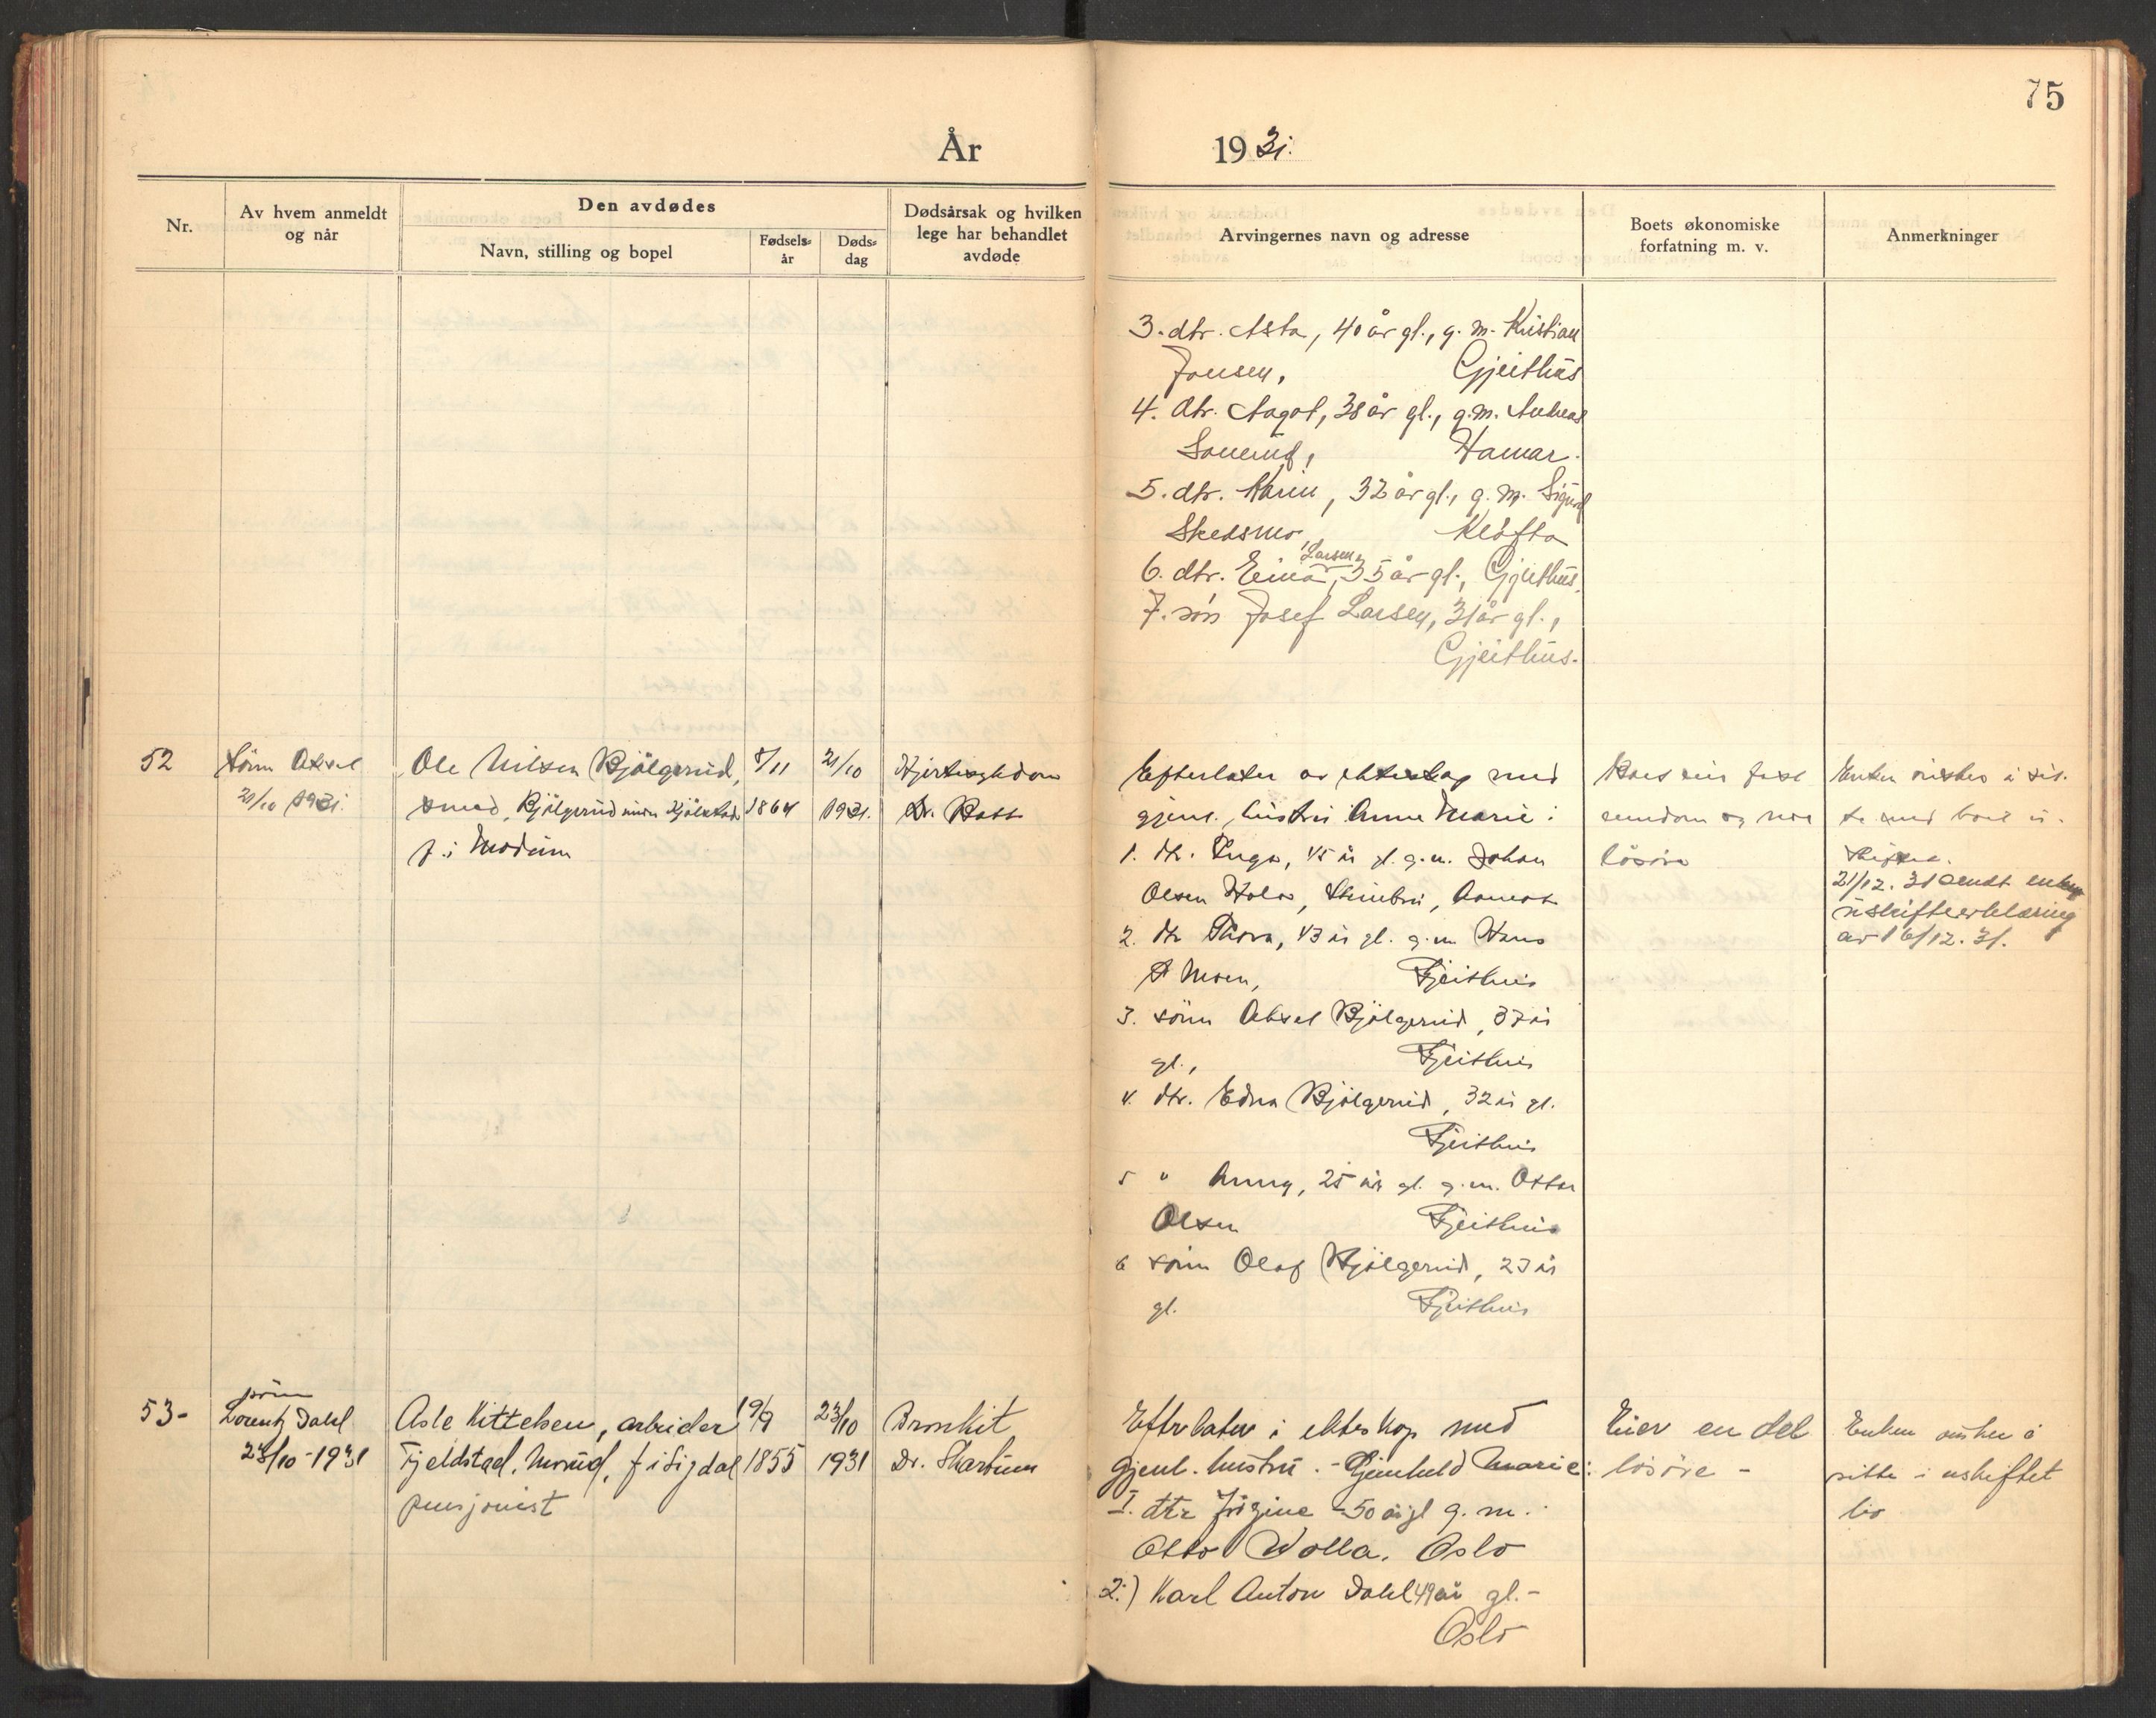 75
År 1931.
Nr.
Av hvem anmeldt
og når
Den avdødes
Navn, stilling og bopel
Fødsels-
år
Døds-
dag
Dødsårsak og hvilken
lege har behandlet
avdøde
Arvingernes navn og adresse
Boets økonomiske
forfatning m. v.
Anmerkninger
3. dtr. Asta, 40 år gl., g. m. Kristian
Jonsen, Gjeithus
4. dtr. Aagot, 38 år gl., g.m. Andreas
Hamar.
5. dtr. Karin, 32 år gl., g. m. Sigurd
Skedsmo, Kløfta
Larsen
6. dtr. Eina, 35 år gl., Gjeithus.
7. søn Josef Larsen, 31 år gl.,
Gjeithus.
52
Sønn Aksel
21/10 1931.
Ole Nilsen Bjølgerud,
smed, Bjølgerud under
f. i Modum
8/11
1864
21/10
1931.
Hjertesykdom
Dr. Bott
Efterlater av ekteskap med
gjenl. hustru Anne Marie:
1. dtr. Inga, 45 år gl. g.m. Johan
Olsen Holo, Åmot
2. dtr Thora, 43 år gl. g.m Hans
Moen, Gjeithus
3. sønn Aksel Bjølgerud, 37 år
gl., Gjeithus
4. dtr. Edna Bjølgerud, 32 år gl.
Gjeithus
5 " Anny, 25 år gl. g.m. Ottar
Olsen Gjeithus
6 sønn Olaf Bjølgerud, 23 år
gl. Gjeithus
Boet eier fast
eiendom og noe
løsøre
Enken ønsker å sit-
te med boet u-
skiftet.
21/12. 31 sendt enken
uskifteerklæring
av 16/12. 31.
53-
sønn
Lorentz Dahl
24/10-1931
Asle Kittelsen, arbeider
Fjeldstad, Morud, f i Sigdal
pensjonist
19/9
1855
23/10
1931
Bronkit
Dr. Skartum
Efterlater i ekteskap med
gjenl. hustru. - Gunhild Marie:
I. dtr Jørgine - 50 år gl g. m.
Otto Wolla. Oslo
2.) Karl Anton Dahl 49 år gl.-
Oslo
Eier en del
løsøre -
Enken ønsker å
sitte i uskiftet
bo